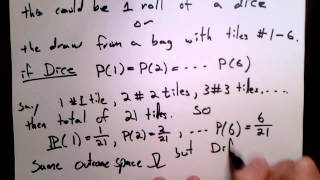 this could be 1 roll of a dice
or
the draw from a bag with tiles #1-6.
if Dice P(1) = P(2) = ---- P(6)
Say 1 #1 tile, 2 #2 tiles, 3 #3 tiles, ....
then total of 21 tiles. So
P(1) = 1/21, P(2) = 2/21, ... P(6) = 6/21
Same outcome space but Dif